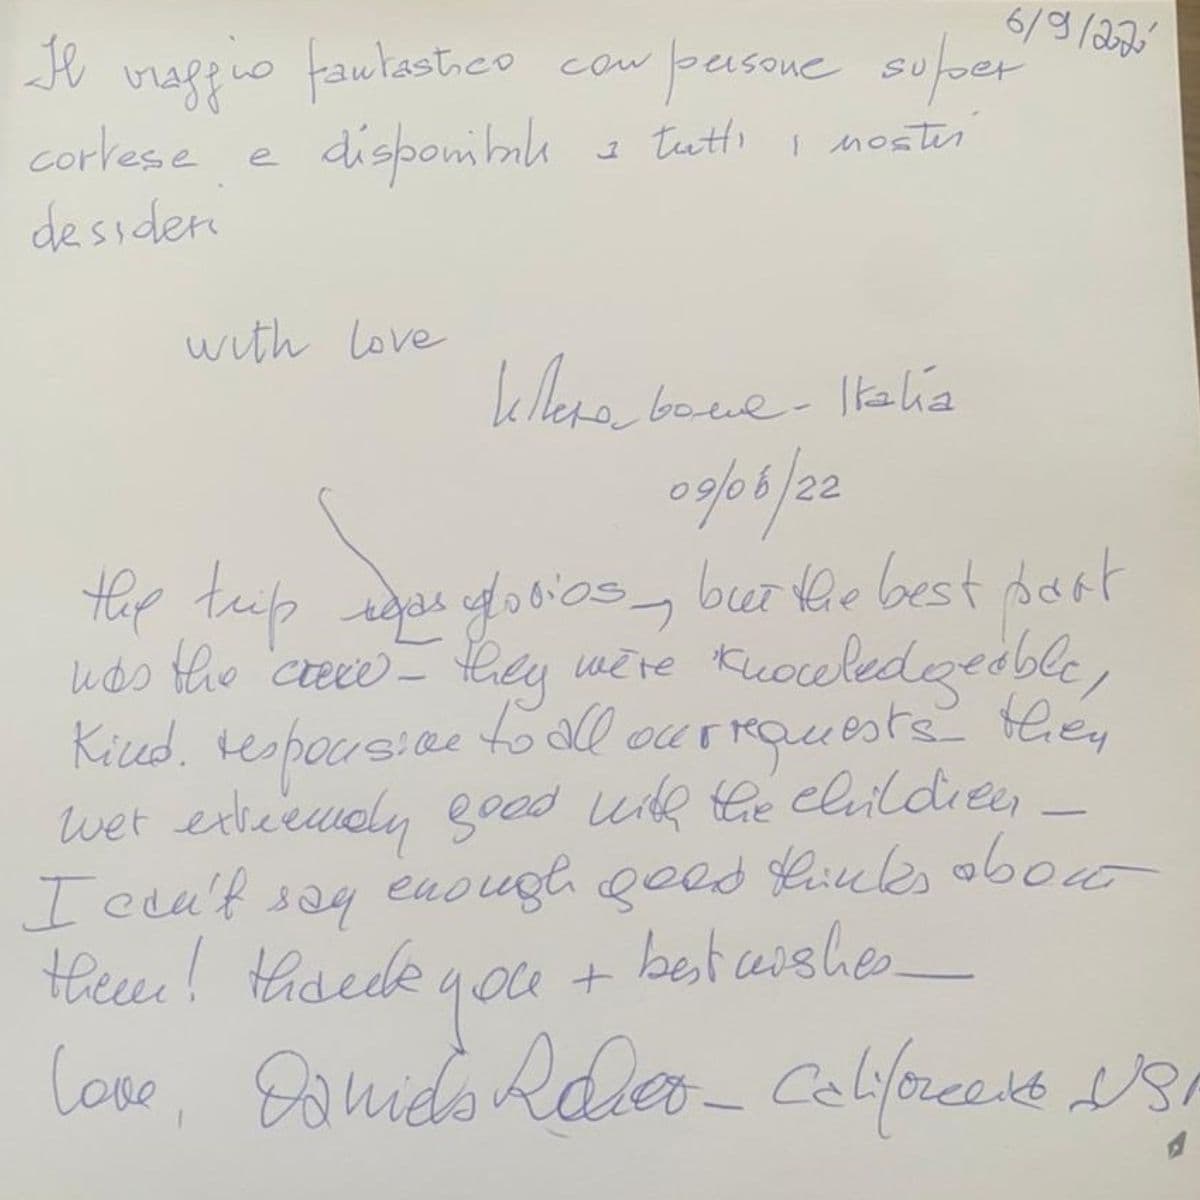 6/9/2022
Il viaggio fantastico con persone super
cortese e disponibili a tutti i nostri
desideri
with love
Italia
09/06/22
the trip was glorios, but the best part
was the crew - they were knowledgeable,
kind. responsive to all our requests they
wer extremely good with the children -
I can't say enough good thinks about
them! thank you + best wishes
love, - California USA